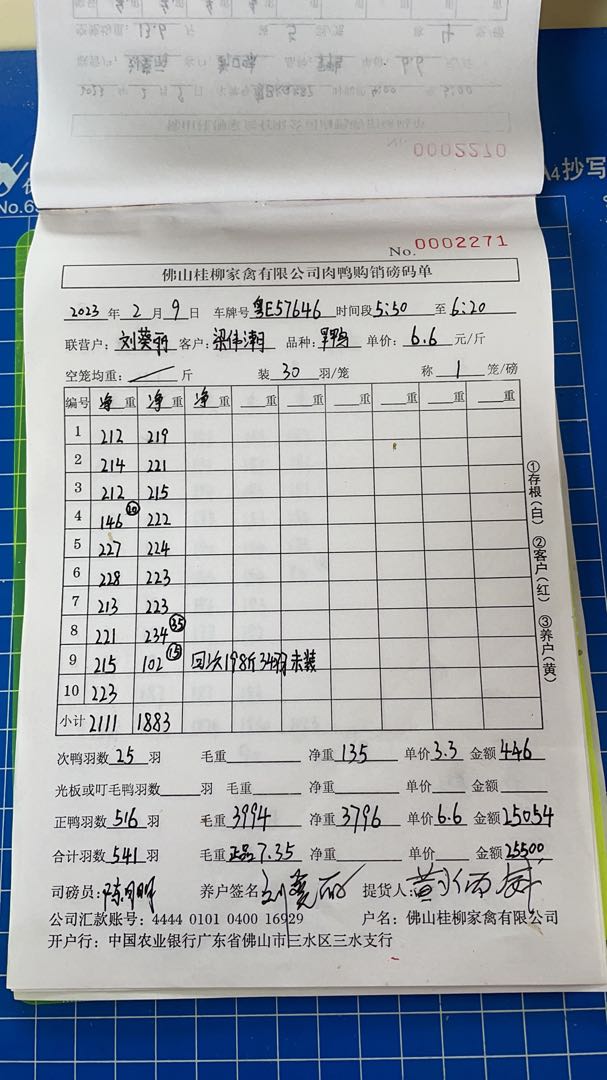 0002270
A4抄写
No.6
No. 0002271
佛山桂柳家禽有限公司肉鸭购销磅码单
2023年2月9日 车牌号粤E57646 时间段5:50至6:20
联营户:刘葵丽 客户:梁伟潮 品种:旱鸭 单价:6.6元/斤
空笼均重:/斤 装30羽/笼 称1笼/磅
编号 净重 净重 净重 重 重 重 重 重
1 212 219
2 214 221
3 212 215
4 146 20 222
5 227 224
6 228 223
7 213 223
8 221 234 35
9 215 102 15 回次198斤34羽未装
10 223
小计 2111 1883
①存根(白) ②客户(红) ③养户(黄)
次鸭羽数25羽 毛重 净重135 单价3.3 金额446
光板或叮毛鸭羽数 羽 毛重 净重 单价 金额
正鸭羽数516羽 毛重3994 净重3796 单价6.6 金额25054
合计羽数541羽 毛重正品7.35 净重 单价 金额25500
司磅员: 养户签名 刘葵丽 提货人:
公司汇款账号:4444 0101 0400 16929 户名:佛山桂柳家禽有限公司
开户行:中国农业银行广东省佛山市三水区三水支行